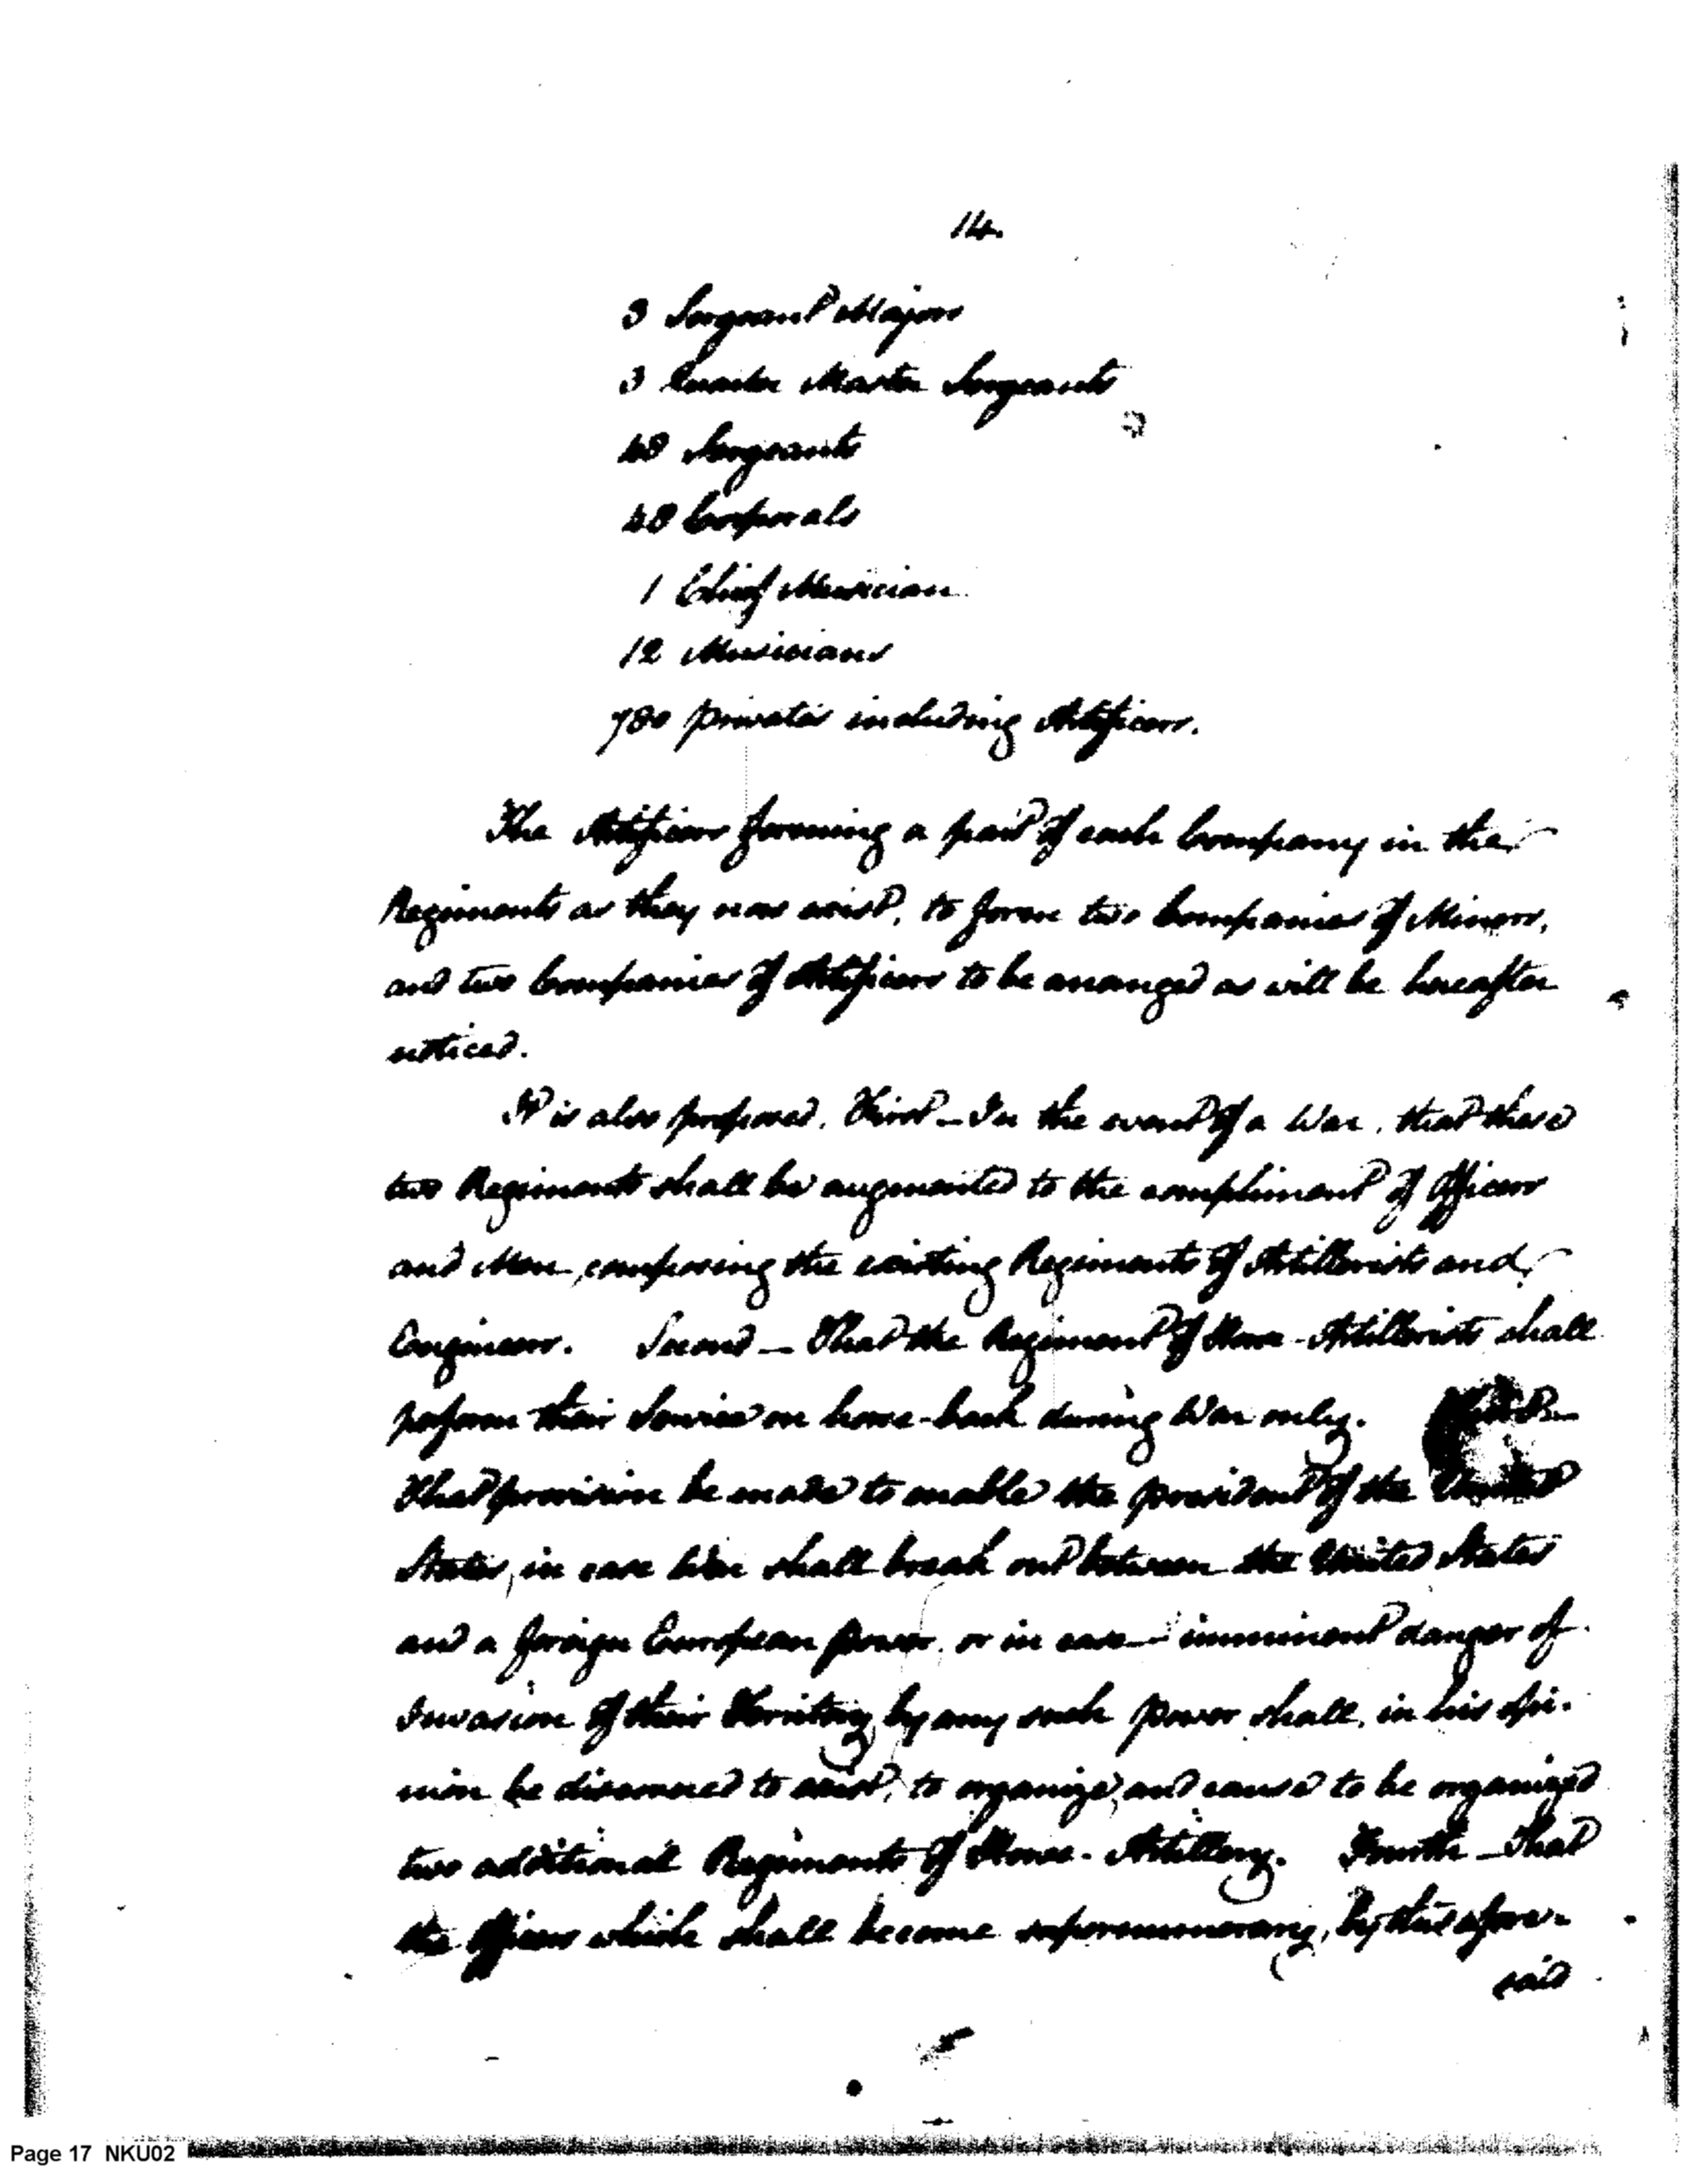 14.
3 Sergeant Majors
3 Quarter Master Sergeants
48 Sergeants
48 Corporals
1 Chief Musician
12 Musicians
780 privates including Artificers.
The Artificers forming a part of each Company in the
Regiments as they now exist, to form two Companies of Miners,
and two Companies of Artificers to be arranged as will be hereafter
noticed.
It is also proposed. First – In the event of a War, that these
two Regiments shall be augmented to the compliment of Officers
and Men, composing the existing Regiments of Artillerists and
Engineers. Second – That the Regiment of Horse-Artillerists shall
perform their Service on horse-back during War only.
That provision be made to enable the president of the United
States, in case War shall break out between the United States
and a foreign European power, or in case imminent danger of
Invasion of their Territory by any such power shall, in his opi-
nion be discovered to exist, to organize, and cause to be organized
two additional Regiments of Horse-Artillery. Fourth – That
the Officers which shall become supernumerary, by this afore-
said
Page 17 NKU02